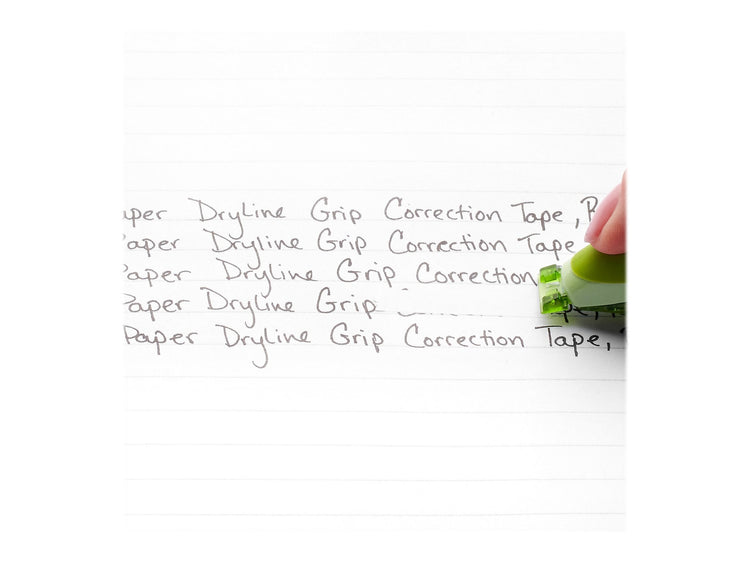 aper DryLine Grip Correction Tape, P
Paper DryLine Grip Correction Tape
Paper DryLine Grip Correction
Paper DryLine Grip
Paper DryLine Grip Correction Tape,